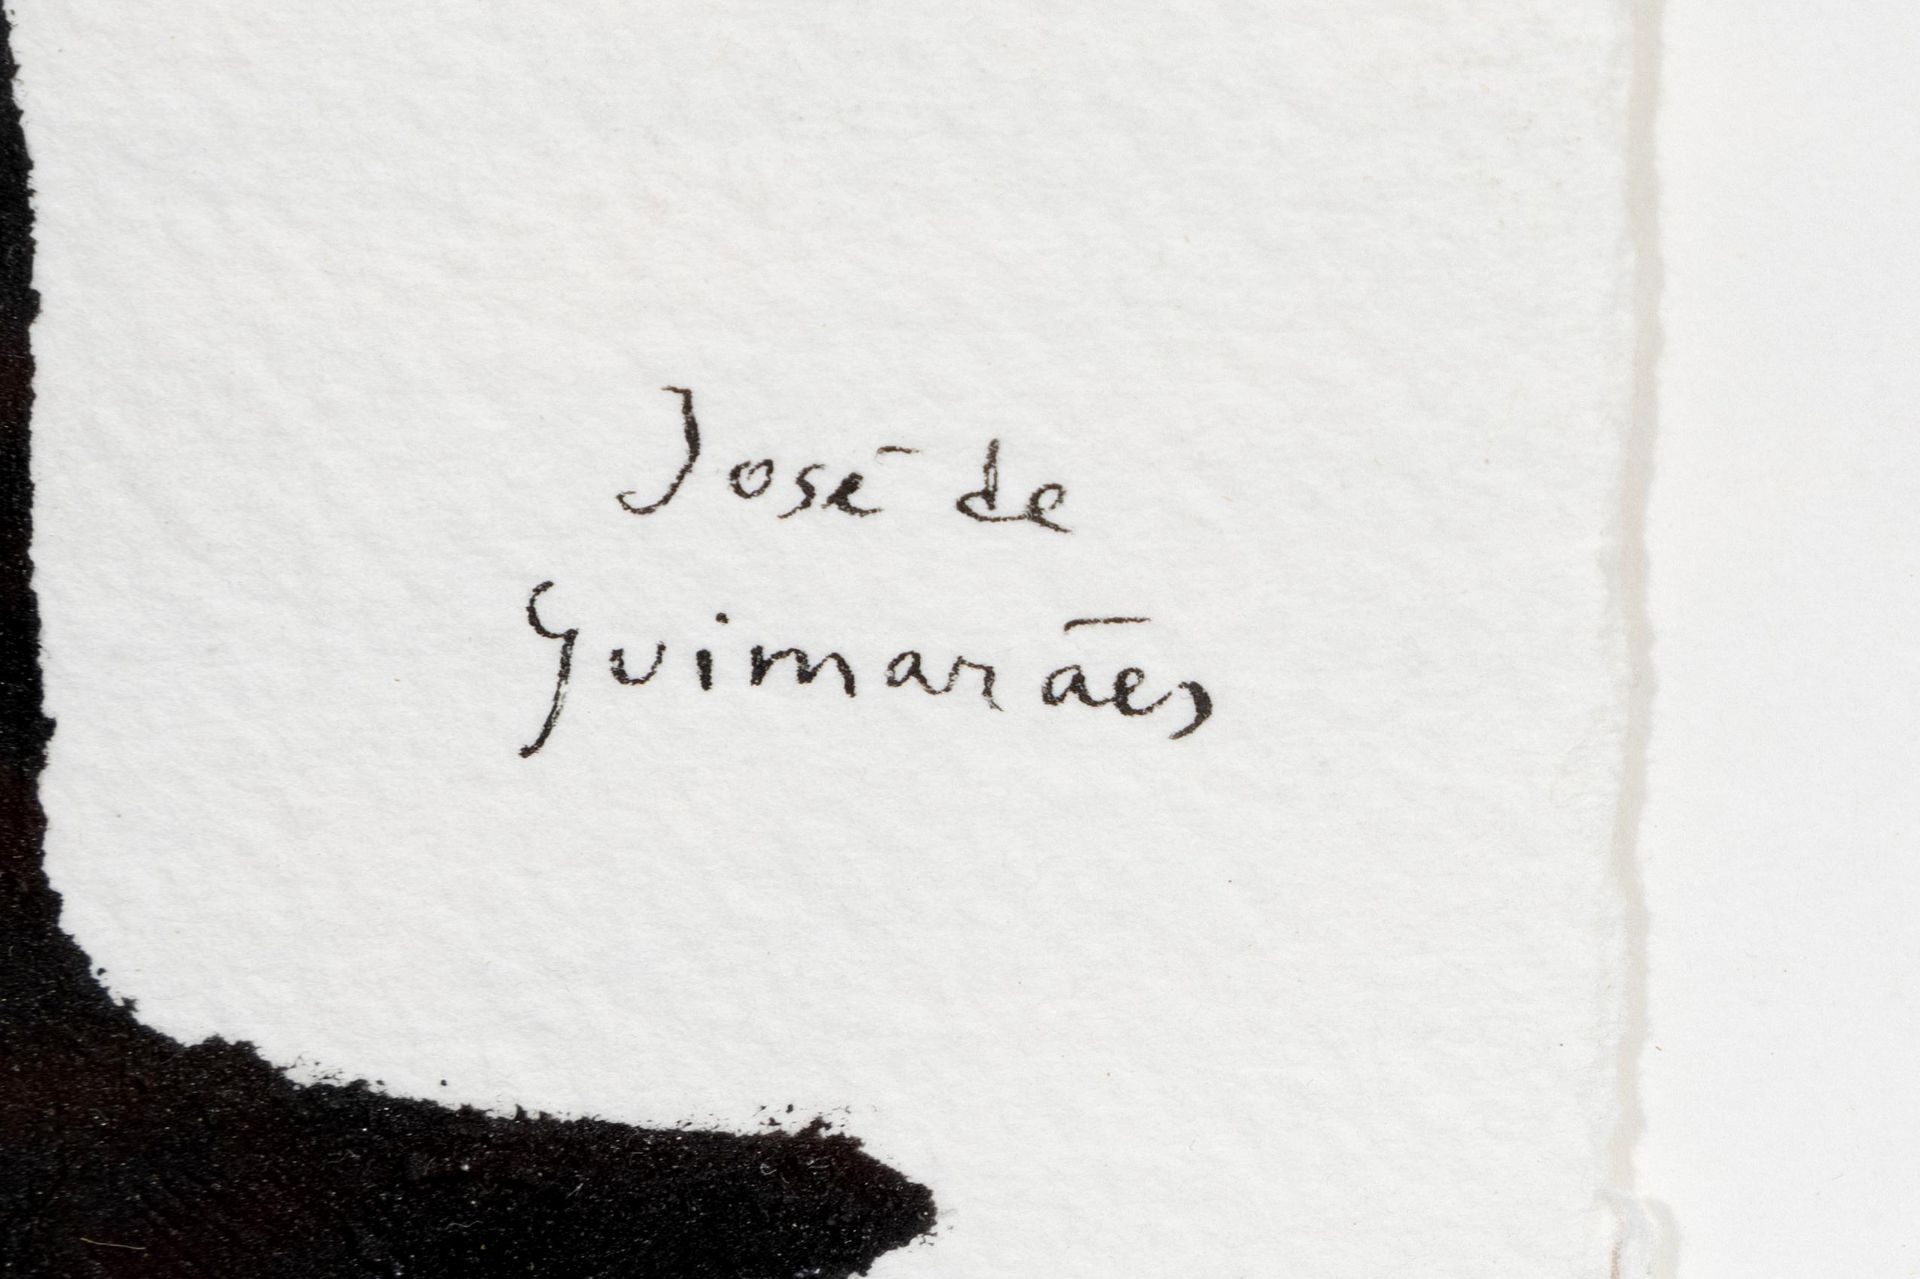 José de
Guimarães